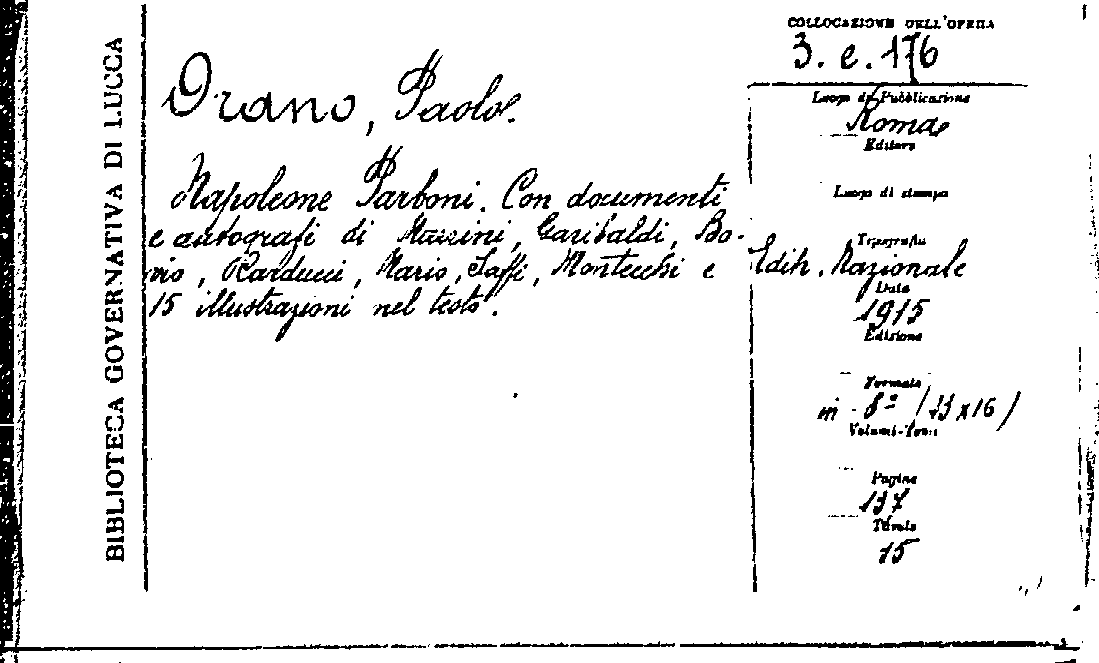 BIBLIOTECA GOVERNATIVA DI LUCCA
Orano, Paolo.
Napoleone Parboni. Con documenti
e autografi di Mazzini, Garibaldi, Bo-
vio, Carducci, Mario, Saffi, Montecchi e
15 illustrazioni nel testo.
COLLOCAZIONE DELL'OPERA
3. e. 176
Luogo di Pubblicazione
Roma
Editore
Luogo di stampa
Tipografia
Edit. Nazionale
Data
1915
Edizione
Formato
in - 8º (23 x 16)
Volumi-Tomi
Pagine
137
Tavole
15